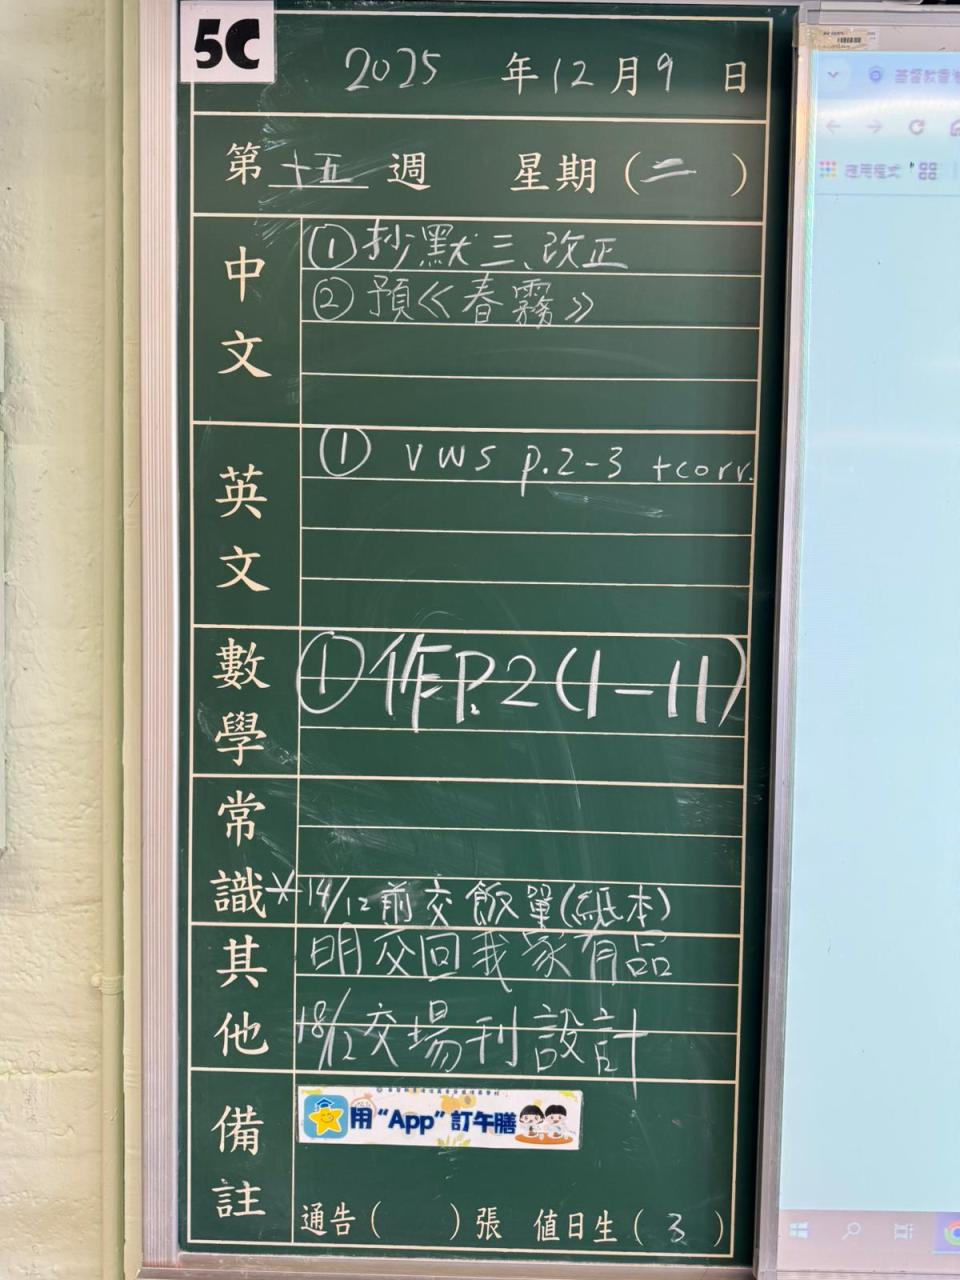 5C
2025 年 12 月 9 日
第 十五 週 星期 (二)
中文
① 抄默三、改正
② 預《春霧》
英文
① VWS p.2-3 +corr.
數學
① 作P.2(1-11)
常識
*14/12前交飯單(紙本)
其他
明交回我家有品
18/12交場刊設計
備註
用"App"訂午膳
通告( )張 值日生(3)
應用程式